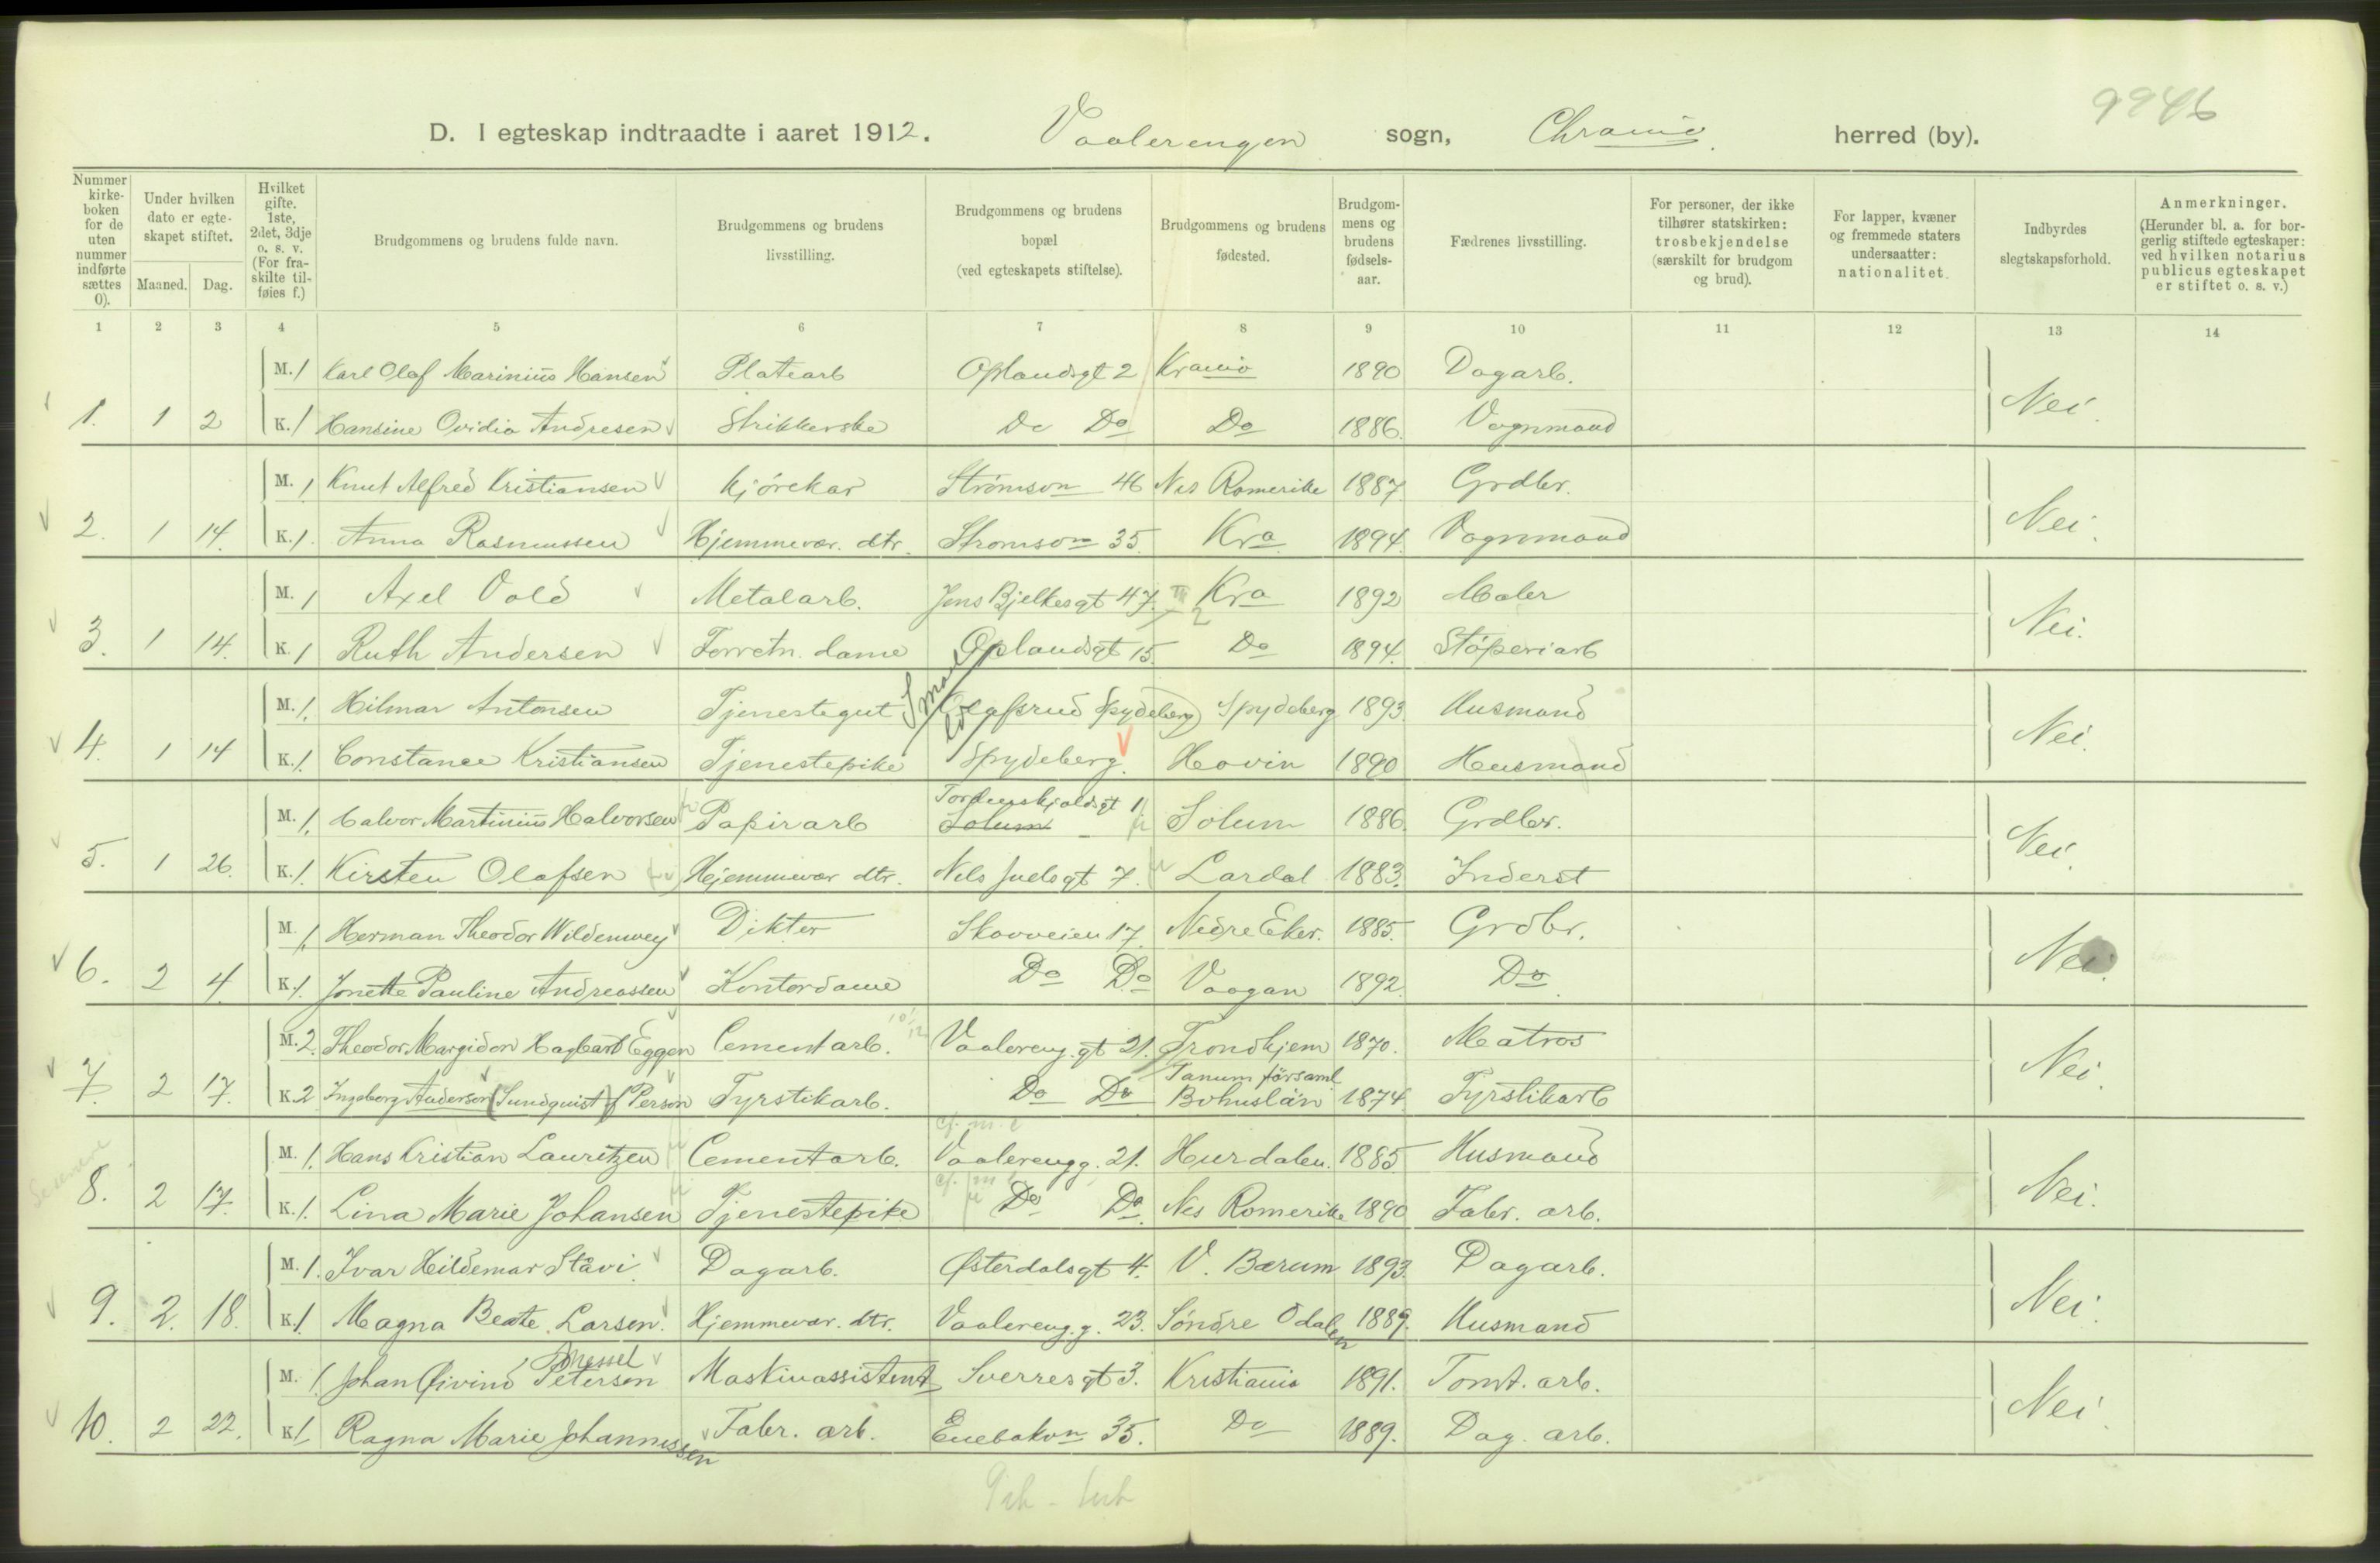 9946
D. I egteskap indtraadte i aaret 1912. Vaalerengen sogn, Chrania. herred (by).
Nummer kirke-boken for de uten nummer indførte sættes 0).
Under hvilken dato er egte-skapet stiftet.
Maaned. Dag.
Hvilket gifte. 1ste, 2det, 3dje o. s. v. (For fra-skilte til-føies f.)
Brudgommens og brudens fulde navn.
Brudgommens og brudens livsstilling.
Brudgommens og brudens bopæl (ved egteskapets stiftelse).
Brudgommens og brudens fødested.
Brudgom-mens og brudens fødsels-aar.
Fædrenes livsstilling.
For personer, der ikke tilhører statskirken: trosbekjendelse (særskilt for brudgom og brud).
For lapper, kvæner og fremmede staters undersaatter: nationalitet.
Indbyrdes slegtskapsforhold.
Anmerkninger. (Herunder bl. a. for bor-gerlig stiftede egteskaper: ved hvilken notarius publicus egteskapet er stiftet o. s. v.)
1 2 3 4 5 6 7 8 9 10 11 12 13 14
M. 1 Karl Olaf Marinius Hansen Platearb Oplandsgt 2 Krania 1890 Dagarb.
1. 1 2 K. 1 Hansine Ovidia Andresen Strikkerske Do Do Do 1886. Vognmand Nei.
M. 1 Knut Alfred Kristiansen Kjørekar Strømson 46 Nes Romerike 1887 Grdbr.
2. 1 14. K. 1. Anna Rasmussen Hjemmevær. dtr. Strømson 35. Kra 1894. Vognmand Nei.
M. 1 Axel Vold Metalarb. Jens Bjelkesgt 47. II 2 Kra 1892 Maler
3. 1 14. K. 1 Ruth Andersen Forretn. dame Oplandsgt 15. Do 1894. Støperiarb Nei.
M. 1. Hilmar Antonsen Tjenestegut Olafsrud Spydeberg) Spydeberg 1893. Husmand
4. 1 14 K. 1. Constance Kristiansen Tjenestepike Spydeberg. Hovin 1890 Husmand Nei.
M. 1. Halvor Martinius Halvorsen Papirarb Tordenskjoldsgt 1 Solum Solum 1886. Grdbr.
5. 1 26. K. 1. Kirsten Olafsen Hjemmevær dtr. Nels Juels gt 7. Lardal 1883. Inderst Nei.
M. 1. Herman Theodor Wildenwey Dikter Skovveien 17. Nedre Eker. 1885. Grdbr.
6. 2 4. K. 1. Jonette Pauline Andreassen Kontordame Do Do Vaagan 1892. Do. Nei.
M. 2. Theodor Margidon Hagbart Eggen Cementarb. Vaalereng. gt 21. Trondhjem 1870. Matros
7. 2 17. K. 2 Ingeborg Anderson (Sundquist) f Person Tyrstikarb. Do Do Tanum församl Bohuslän 1874. Fyrstikarb Nei.
M. 1. Hans Kristian Lauritzen Cementarb. Vaalerengg. 21. Hurdalen. 1885. Husmand
8. 2 17. K. 1. Lina Marie Johansen Tjenestepike Do Do. Nes Romerike 1890 Fabr. arb. Nei.
M. 1. Ivar Hildemar Stavi Dagarb. Østerdalsgt 4. V. Bærum 1893. Dagarb.
9. 2. 18. K. 1. Magna Beate Larsen. Hjemmevær. dtr. Vaalereng. g. 23. Søndre Odalen 1889. Husmand Nei.
M. 1. Johan Øivind Messel Petersen Maskinassistent Sverresgt 3. Kristiania 1891. Tomt. arb.
10. 2 22. K. 1. Ragna Marie Johannessen Fabr. arb. Enebakvn 35. Do 1889. Dag. arb. Nei.